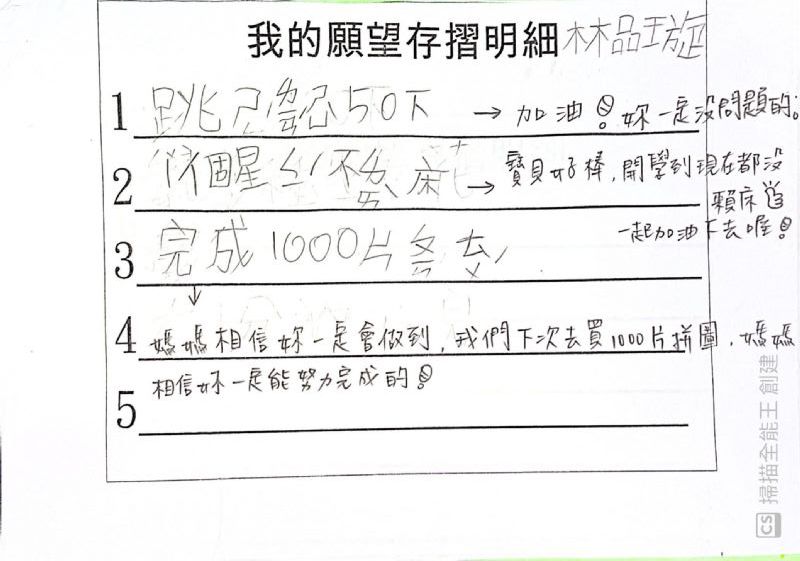 我的願望存摺明細 林品璇
1 跳 50下 → 加油! 妳一定沒問題的。
2 醒 不 床 → 寶貝好棒,開學到現在都沒
賴床
一起加油下去喔!
3 完成1000片
↓
4 媽媽相信妳一定會做到,我們下次去買1000片拼圖,媽媽
5 相信妳一定能努力完成的!
CS 掃描全能王 創建